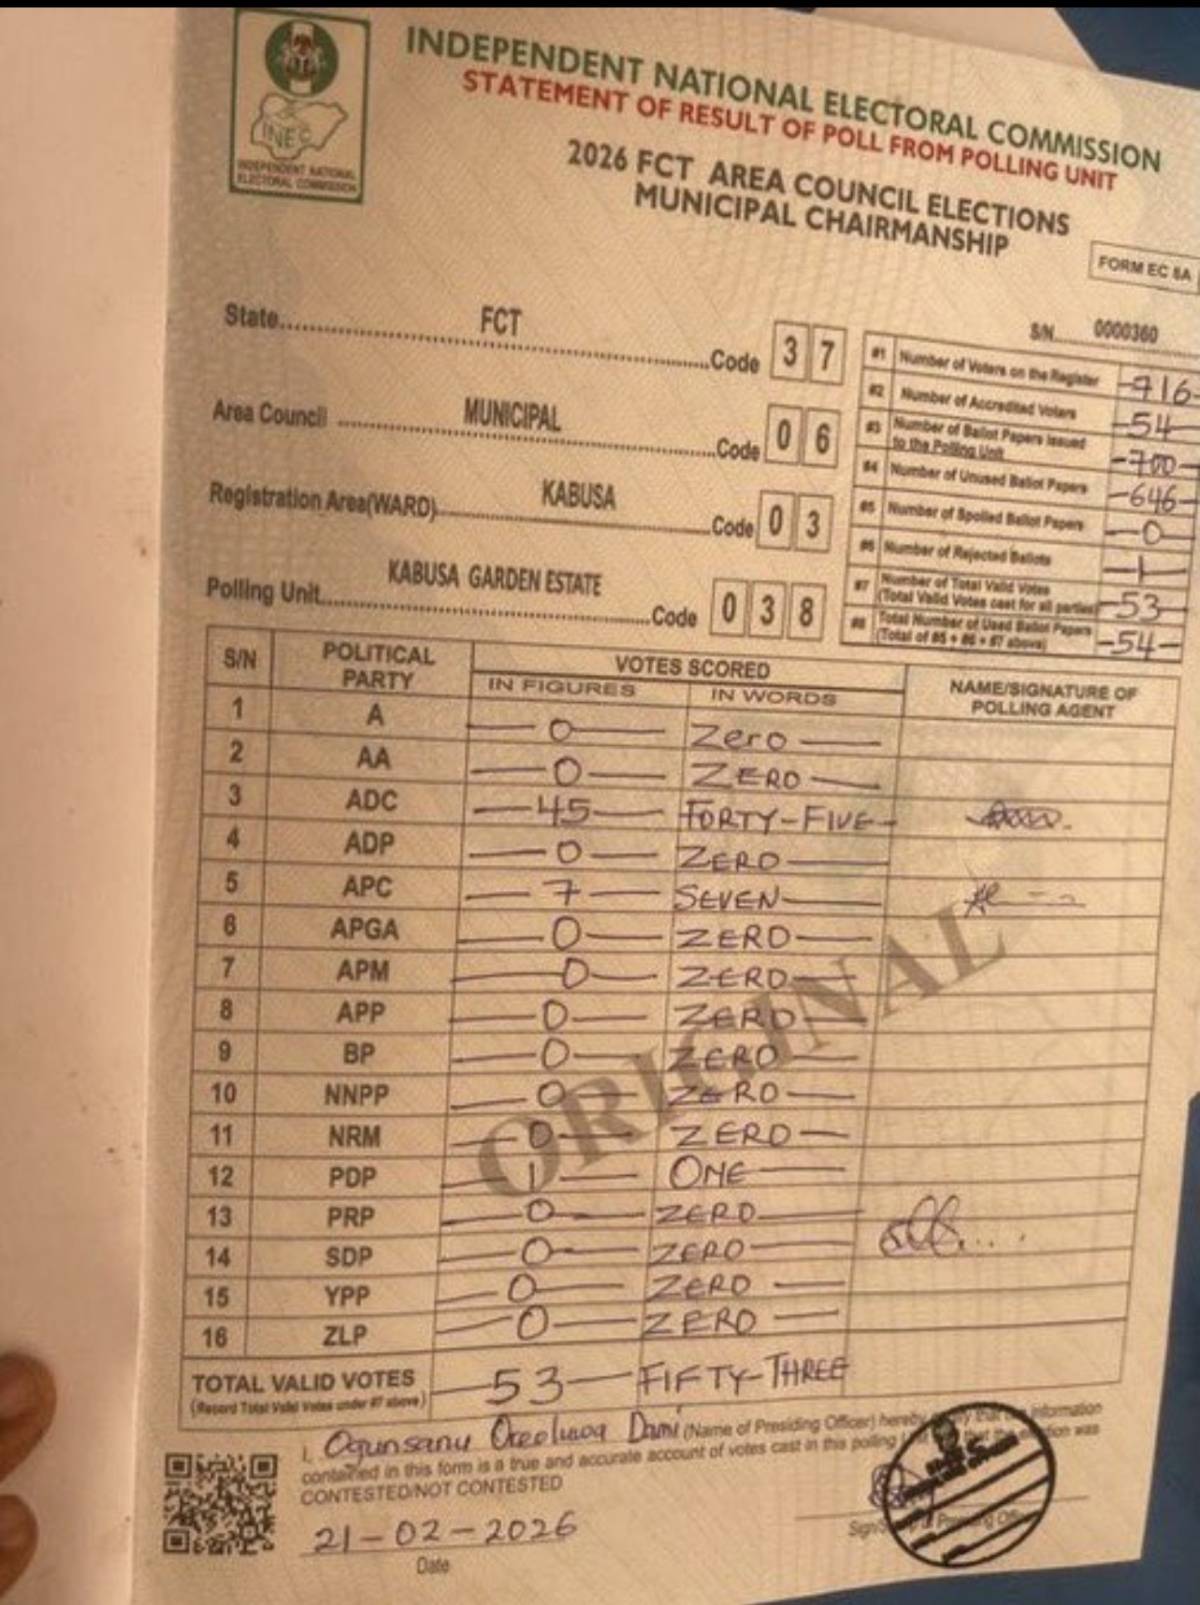 INEC
INDEPENDENT NATIONAL
ELECTORAL COMMISSION
INDEPENDENT NATIONAL ELECTORAL COMMISSION
STATEMENT OF RESULT OF POLL FROM POLLING UNIT
2026 FCT AREA COUNCIL ELECTIONS
MUNICIPAL CHAIRMANSHIP
FORM EC 8A
S/N 0000360
State FCT Code 3 7
Area Council MUNICIPAL Code 0 6
Registration Area(WARD) KABUSA Code 0 3
Polling Unit KABUSA GARDEN ESTATE Code 0 3 8
#1 Number of Voters on the Register 716
#2 Number of Accredited Voters 54
#3 Number of Ballot Papers Issued
to the Polling Unit 700
#4 Number of Unused Ballot Papers 646
#5 Number of Spoiled Ballot Papers 0
#6 Number of Rejected Ballots 1
#7 Number of Total Valid Votes
(Total Valid Votes cast for all parties) 53
#8 Total Number of Used Ballot Papers
(Total of #5 + #6 + #7 above) 54
S/N POLITICAL PARTY VOTES SCORED NAME/SIGNATURE OF POLLING AGENT
IN FIGURES IN WORDS
1 A 0 Zero
2 AA 0 ZERO
3 ADC 45 FORTY-FIVE
4 ADP 0 ZERO
5 APC 7 SEVEN
6 APGA 0 ZERO
7 APM 0 ZERO
8 APP 0 ZERO
9 BP 0 ZERO
10 NNPP 0 ZERO
11 NRM 0 ZERO
12 PDP 1 ONE
13 PRP 0 ZERO
14 SDP 0 ZERO
15 YPP 0 ZERO
16 ZLP 0 ZERO
ORIGINAL
TOTAL VALID VOTES 53 FIFTY-THREE
(Record Total Valid Votes under #7 above)
I, Ogunsanu Oreoluwa Dami (Name of Presiding Officer) hereby that information
contained in this form is a true and accurate account of votes cast in this polling that the was
CONTESTED/NOT CONTESTED
21-02-2026
Date